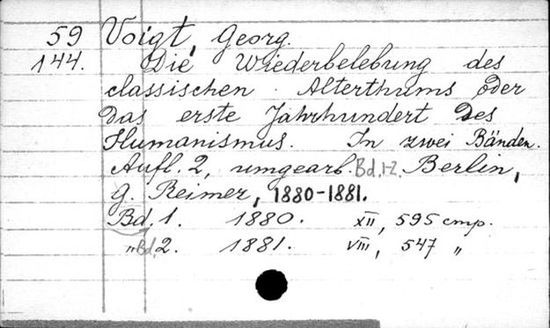 59 Voigt, Georg.
144. Die Wiederbelebung des
classischen Alterthums oder
das erste Jahrhundert des
Humanismus. In zwei Bänden.
Aufl. 2, umgearb. Bd. 1-2. Berlin,
G. Reimer, 1880-1881.
Bd. 1. 1880. XII, 595 стр.
" Bd. 2. 1881. VIII, 547 "